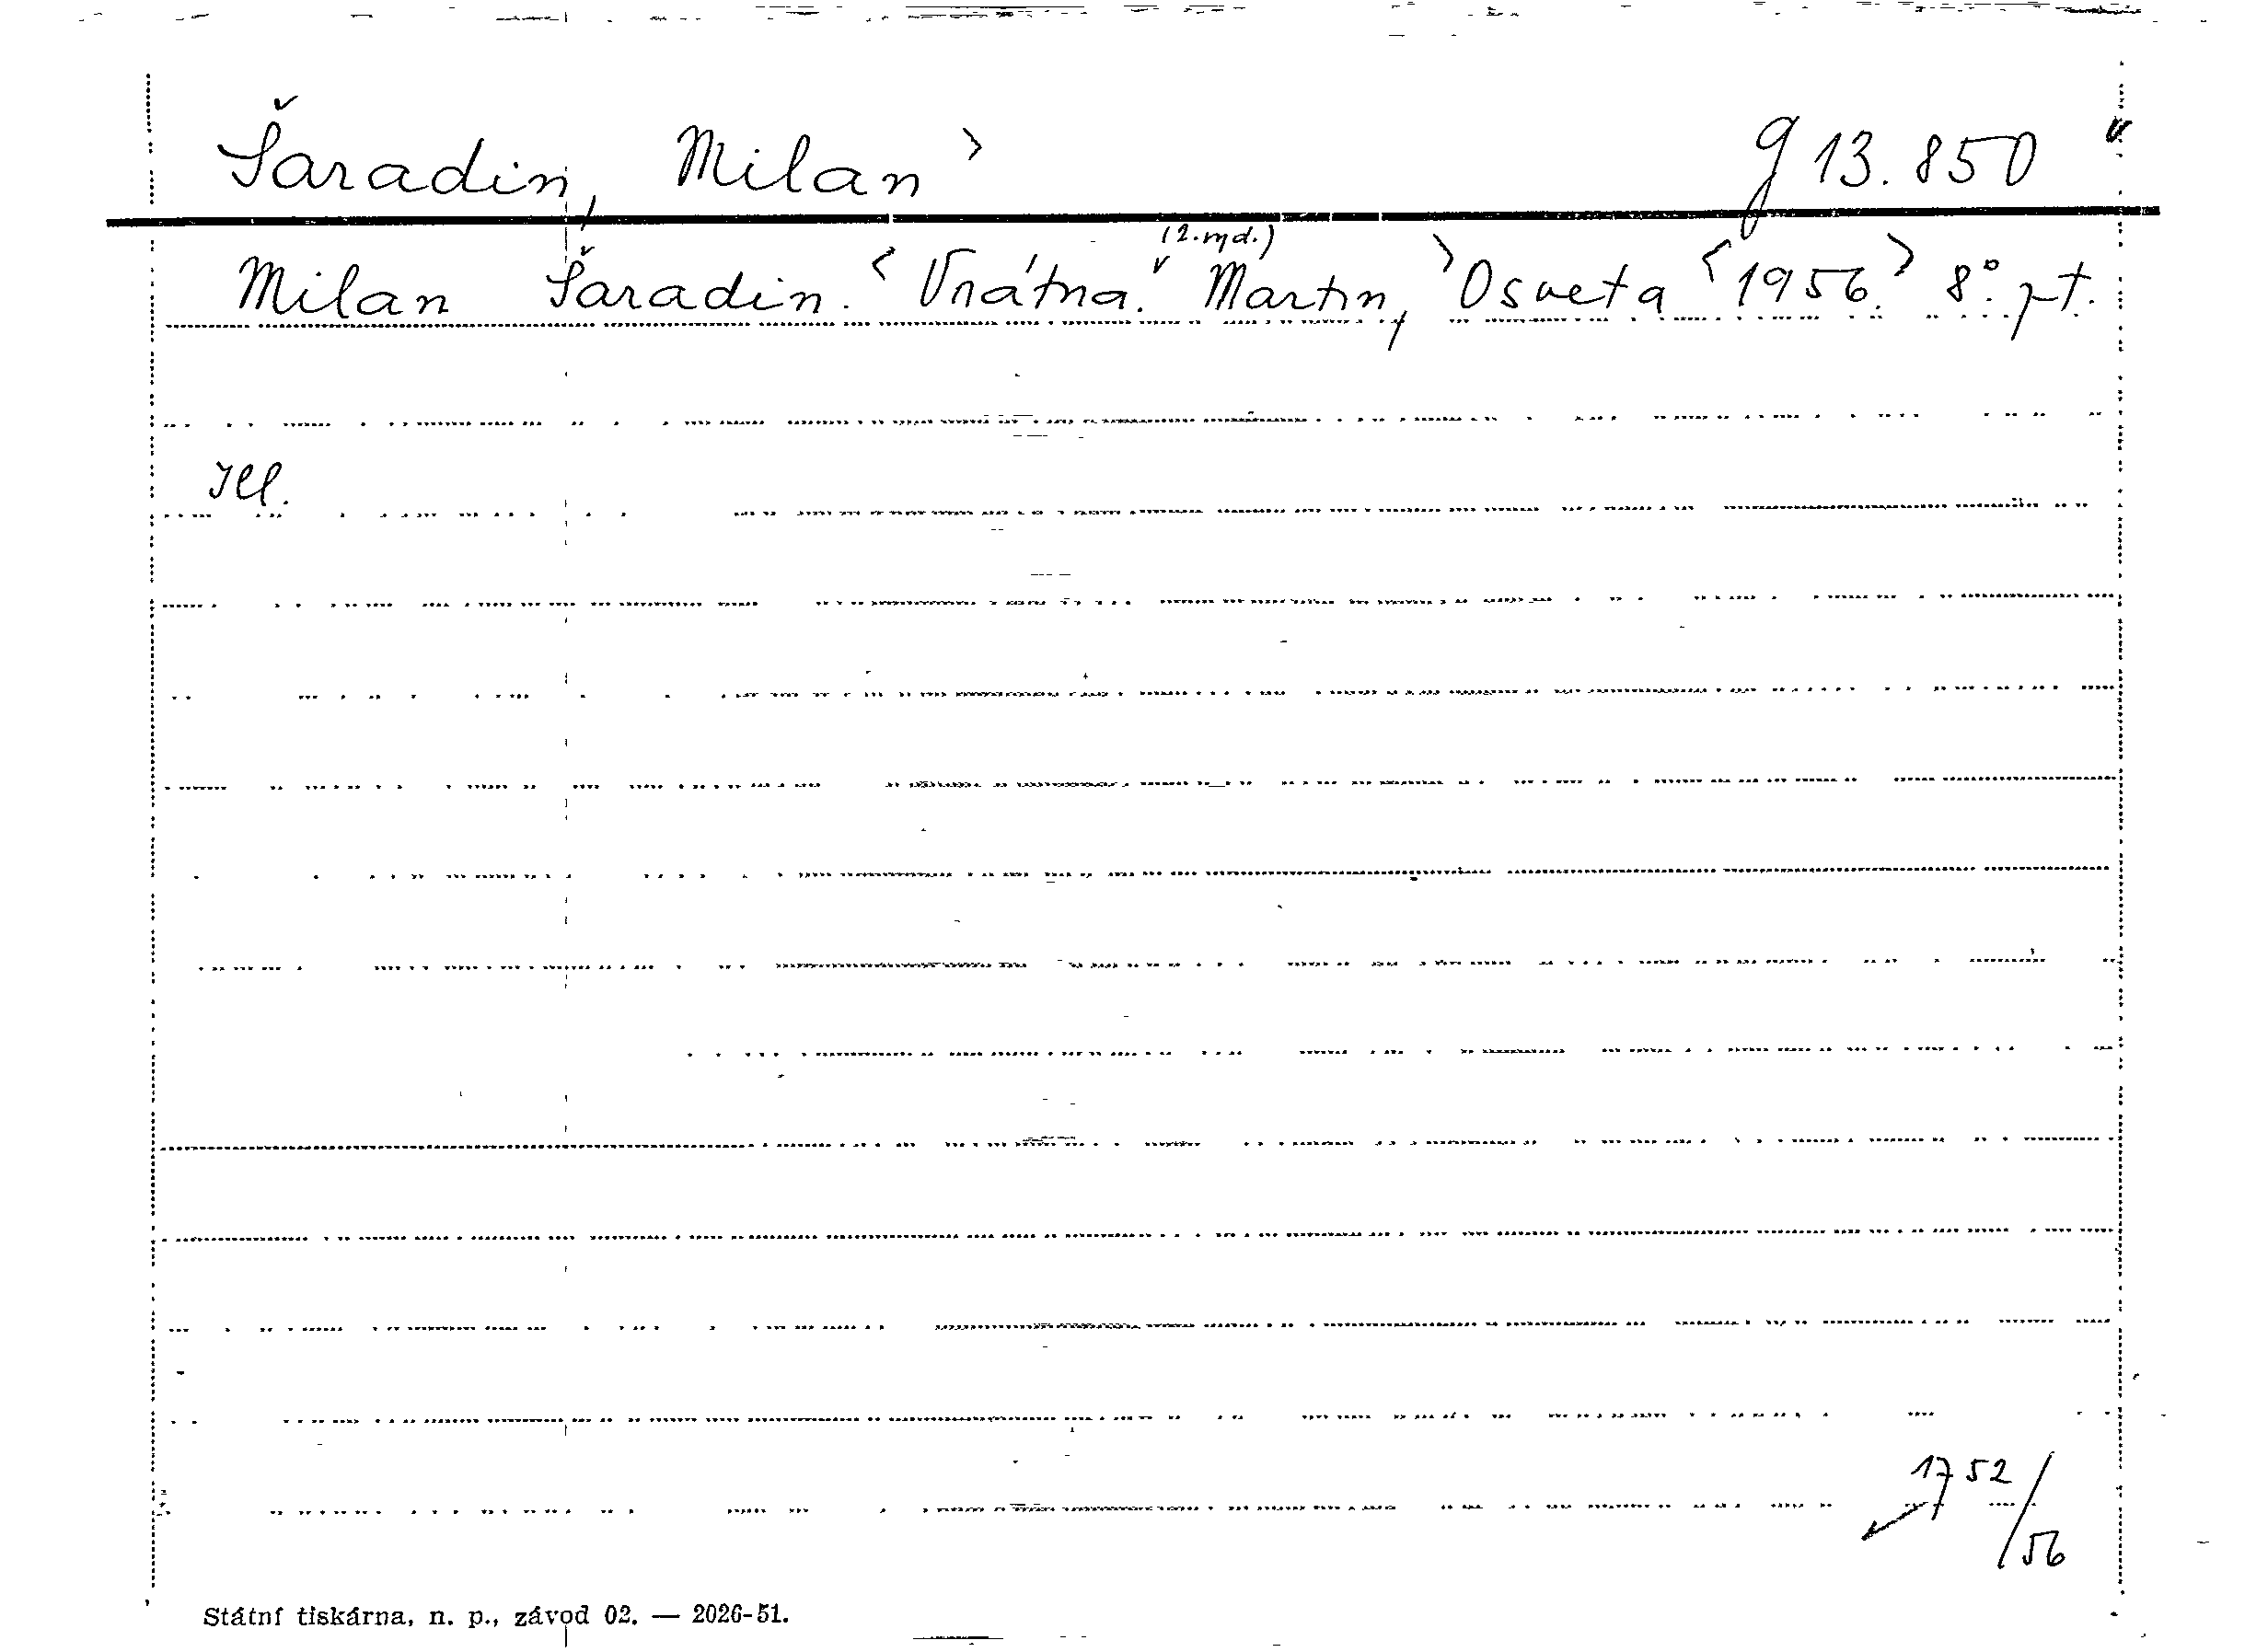 Šaradin, Milan> g 13.850
(2. vyd.)
Milan Šaradin. <Vrátna.ˇ Martin,> Osveta <1956.> 8°. pt.
Ill.
1752/56
Státní tiskárna, n. p., závod 02. — 2026-51.